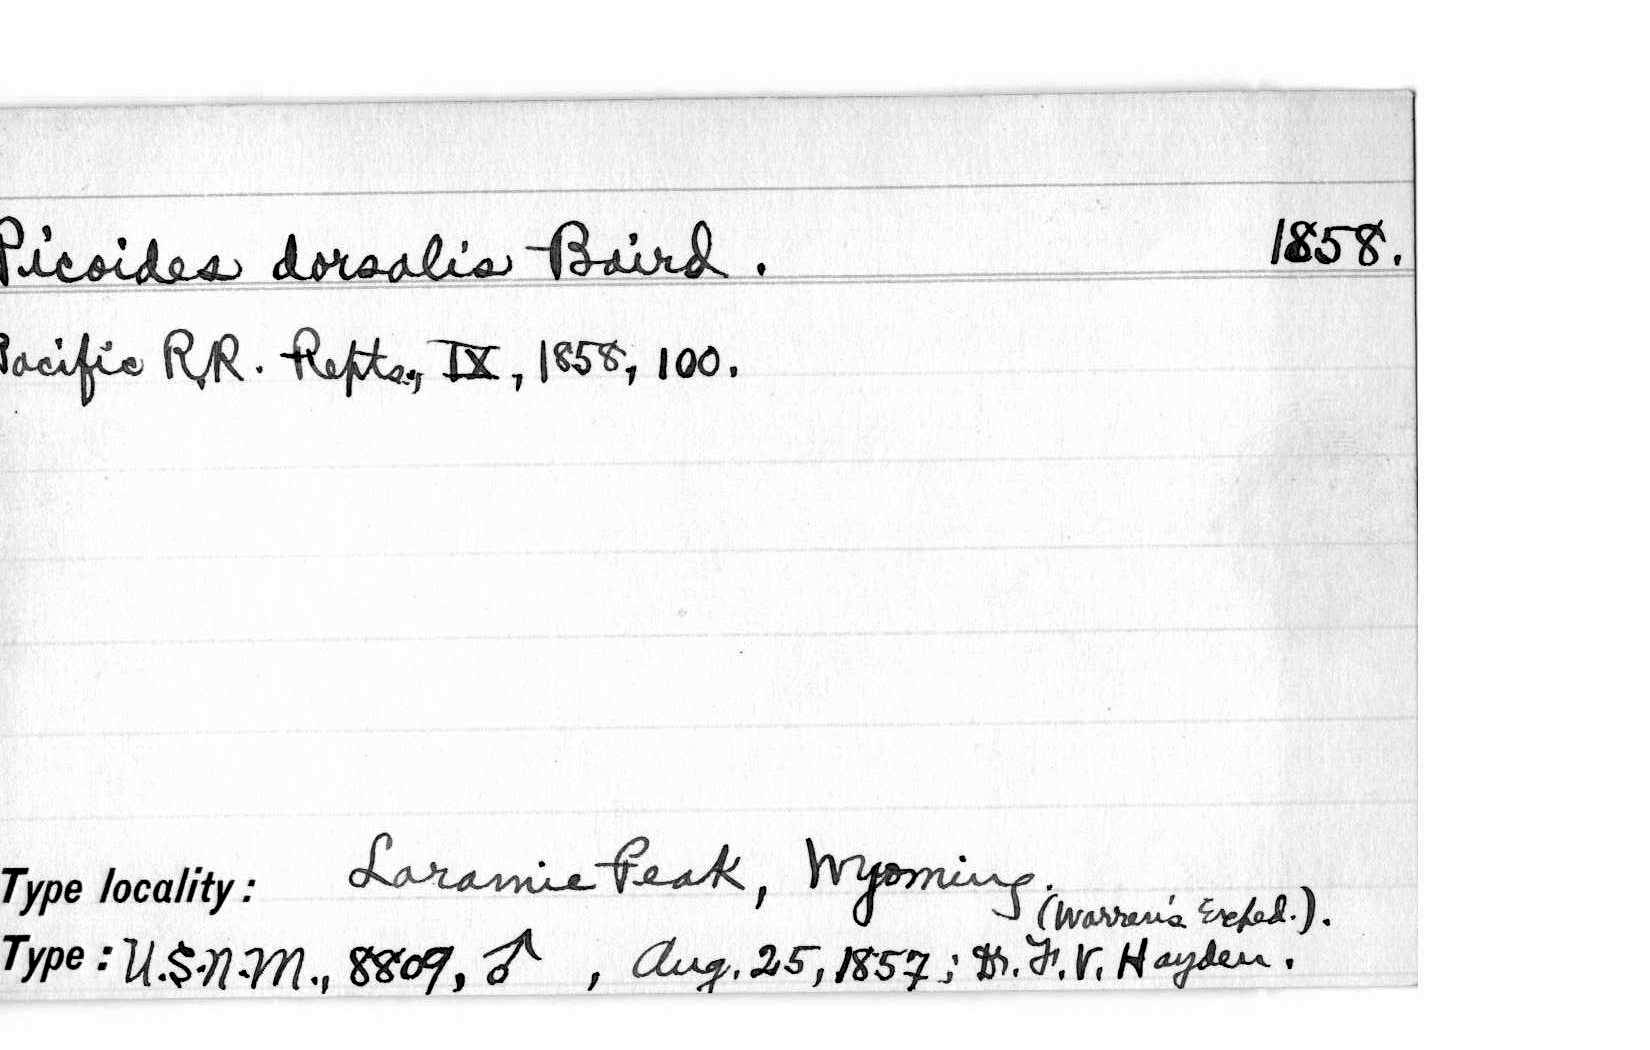 Picoides dorsalis Baird. 1858.
Pacific R.R. Repts., IX, 1858, 100.
Type locality: Laramie Peak, Wyoming.
(Warren's Exped.).
Type: U.S.N.M., 8809, ♂, Aug. 25, 1857; Dr. F. V. Hayden.